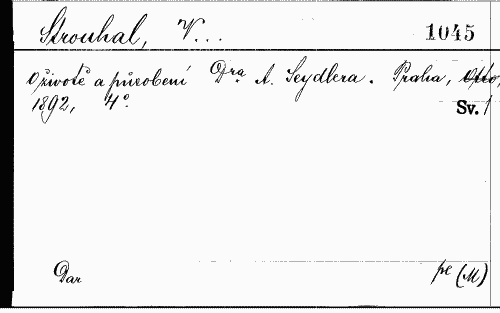 Strouhal, V... 1045
O životě a působení Dra A. Seydlera. Praha, Otto,
1892, 4°. Sv. 1
Dar pe (M)